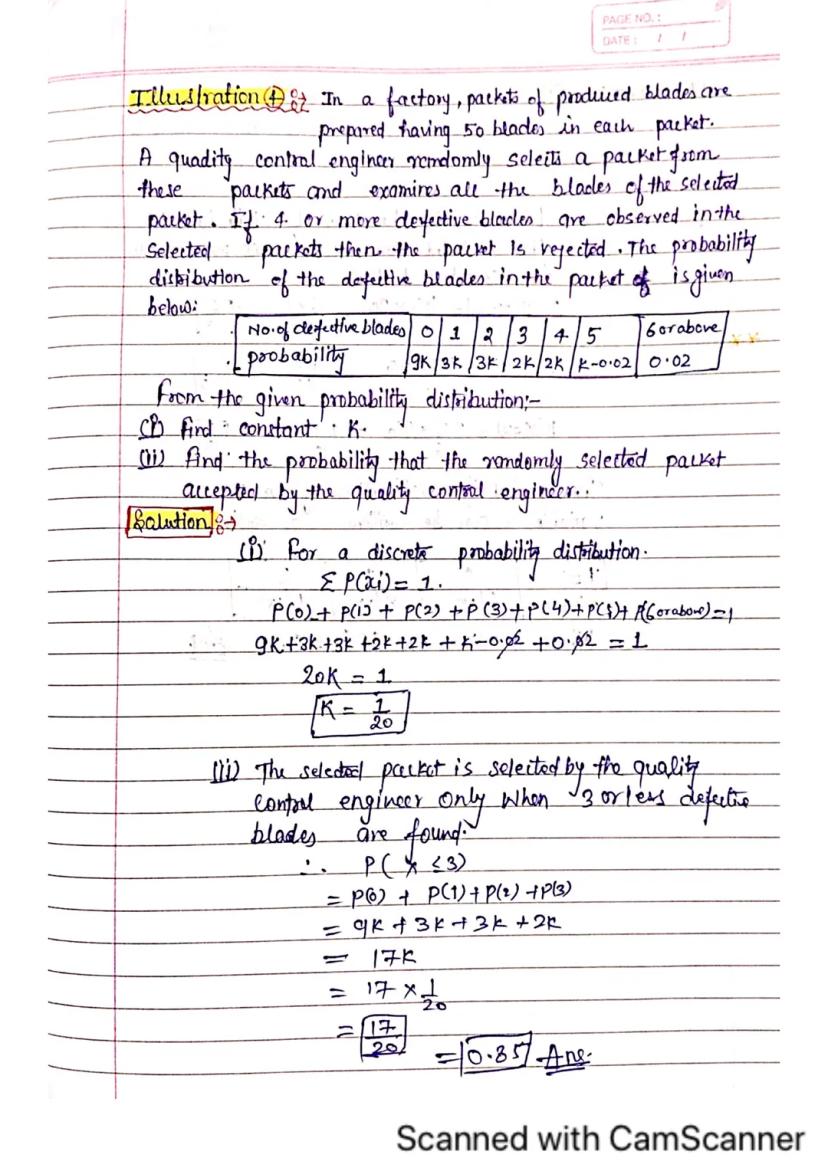 PAGE NO.:
DATE: / /
Illustration ④ :→ In a factory, packets of produced blades are
prepared having 50 blades in each packet.
A quality control engineer randomly selects a packet from
these packets and examines all the blades of the selected
packet. If 4 or more defective blades are observed in the
Selected packets then the packet is rejected. The probability
distribution of the defective blades in the packet of is given
below:
No. of defective blades 0 1 2 3 4 5 6 or above
probability 9K 3K 3K 2K 2K K-0.02 0.02
from the given probability distribution:-
(i) find constant K.
(ii) find the probability that the randomly selected packet
accepted by the quality control engineer.
Solution :→
(i) for a discrete probability distribution.
Σ P(xi) = 1.
P(0) + P(1) + P(2) + P(3) + P(4) + P(5) + P(6 or above) = 1
9K + 3K + 3K + 2K + 2K + K - 0.02 + 0.02 = 1
20K = 1
K = 1/20
(ii) The selected packet is selected by the quality
control engineer only when 3 or less defective
blades are found.
∴ P(X ≤ 3)
= P(0) + P(1) + P(2) + P(3)
= 9K + 3K + 3K + 2K
= 17K
= 17 × 1/20
= 17/20 = 0.85 Ans.
Scanned with CamScanner